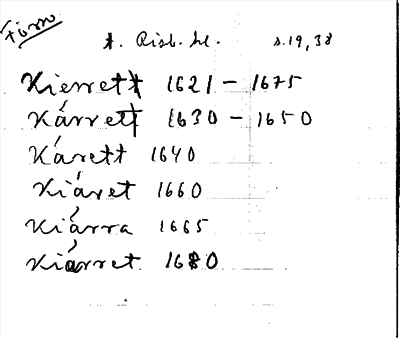 Form
t. Risb. hl. s. 19, 38
Kierrett 1621 - 1675
Kárrett 1630 - 1650
Kárett 1640
Kiáret 1660
Kiárra 1665
Kiárret 1680